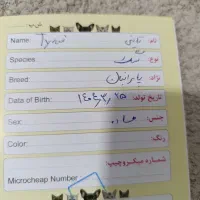 Name: تاینی Tynni نام:
Species: سگ نوع:
Breed: پامرانیان نژاد:
Date of Birth: ۱۴۰۳/۰۳/۲۵ تاریخ تولد:
Sex: ماده جنس:
Color: رنگ:
Microcheap Number: شماره میکروچیپ: